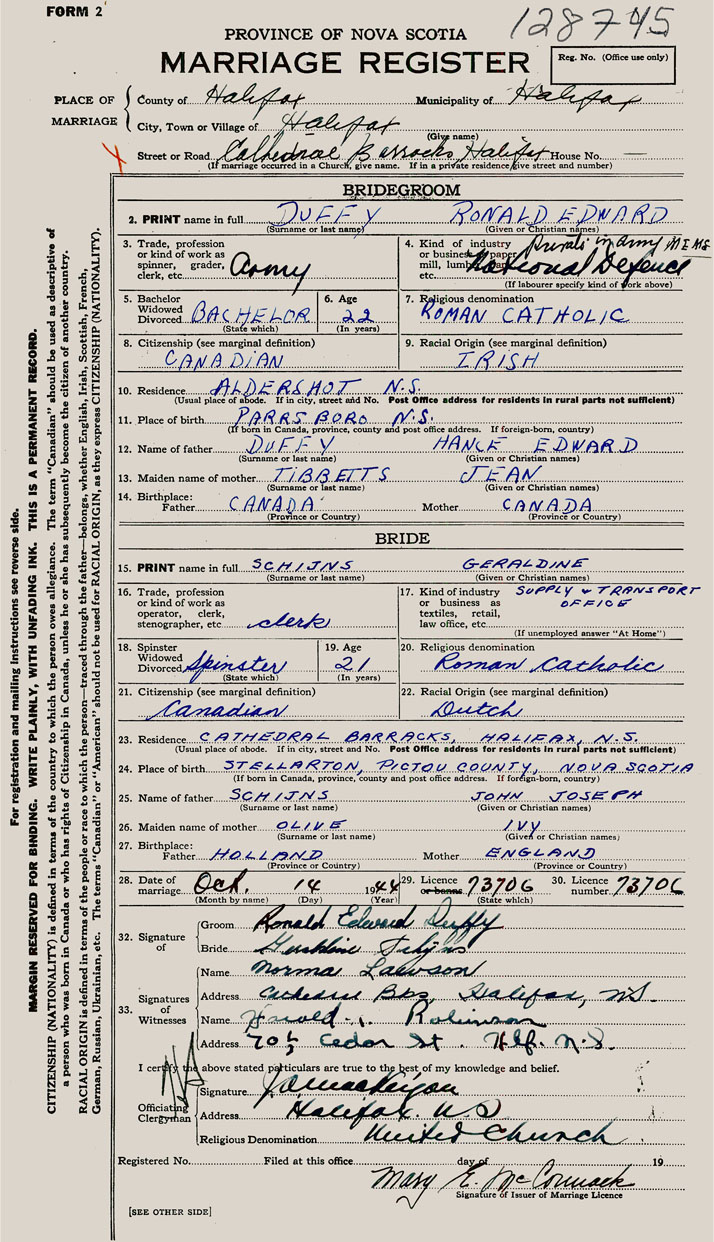 FORM 2
128745
PROVINCE OF NOVA SCOTIA
MARRIAGE REGISTER
Reg. No. (Office use only)
PLACE OF MARRIAGE
County of Halifax Municipality of Halifax
City, Town or Village of Halifax
(Give name)
Street or Road Cathedral Barracks, Halifax House No. —
(If marriage occurred in a Church, give name. If in a private residence give street and number)
BRIDEGROOM
2. PRINT name in full DUFFY RONALD EDWARD
(Surname or last name) (Given or Christian names)
3. Trade, profession or kind of work as spinner, grader, clerk, etc. Army
4. Kind of industry or business, paper mill, etc. Private in Army National Defence
(If labourer specify kind of work above)
5. Bachelor Widowed Divorced BACHELOR
(State which)
6. Age 22
(In years)
7. Religious denomination ROMAN CATHOLIC
8. Citizenship (see marginal definition) CANADIAN
9. Racial Origin (see marginal definition) IRISH
10. Residence ALDERSHOT N.S.
(Usual place of abode. If in city, street and No. Post Office address for residents in rural parts not sufficient)
11. Place of birth PARRSBORO N.S.
(If born in Canada, province, county and post office address. If foreign-born, country)
12. Name of father DUFFY HANCE EDWARD
(Surname or last name) (Given or Christian names)
13. Maiden name of mother TIBBETTS JEAN
(Surname or last name) (Given or Christian names)
14. Birthplace:
Father CANADA Mother CANADA
(Province or Country) (Province or Country)
BRIDE
15. PRINT name in full SCHIJNS GERALDINE
(Surname or last name) (Given or Christian names)
16. Trade, profession or kind of work as operator, clerk, stenographer, etc clerk
17. Kind of industry or business as textiles, retail, law office, etc. SUPPLY & TRANSPORT OFFICE
(If unemployed answer "At Home")
18. Spinster Widowed Divorced Spinster
(State which)
19. Age 21
(In years)
20. Religious denomination Roman Catholic
21. Citizenship (see marginal definition) Canadian
22. Racial Origin (see marginal definition) Dutch
23. Residence CATHEDRAL BARRACKS, HALIFAX, N.S.
(Usual place of abode. If in city, street and No. Post Office address for residents in rural parts not sufficient)
24. Place of birth STELLARTON, PICTOU COUNTY, NOVA SCOTIA
(If born in Canada, province, county and post office address. If foreign-born, country)
25. Name of father SCHIJNS JOHN JOSEPH
(Surname or last name) (Given or Christian names)
26. Maiden name of mother OLIVE IVY
(Surname or last name) (Given or Christian names)
27. Birthplace:
Father HOLLAND Mother ENGLAND
(Province or Country) (Province or Country)
28. Date of marriage Oct. 14 1944
(Month by name) (Day) (Year)
29. Licence or banns 73706
(State which)
30. Licence number 73706
32. Signature of
Groom Ronald Edward Duffy
Bride Geraldine Schijns
33. Signatures of Witnesses
Name Norma Lawson
Address Cathedral Bks, Halifax, NS.
Name Robinson
Address 70½ Cedar St. Hfx. N.S.
I certify the above stated particulars are true to the best of my knowledge and belief.
Officiating Clergyman
Signature
Address Halifax. N S
Religious Denomination United Church
Registered No. Filed at this office day of 19
Mary E. McCormack
Signature of Issuer of Marriage Licence
[SEE OTHER SIDE]
For registration and mailing instructions see reverse side.
MARGIN RESERVED FOR BINDING. WRITE PLAINLY, WITH UNFADING INK. THIS IS A PERMANENT RECORD.
CITIZENSHIP (NATIONALITY) is defined in terms of the country to which the person owes allegiance. The term "Canadian" should be used as descriptive of
a person who was born in Canada or who has rights of Citizenship in Canada, unless he or she has subsequently become the citizen of another country.
RACIAL ORIGIN is defined in terms of the people or race to which the person—traced through the father—belongs, whether English, Irish, Scottish, French,
German, Russian, Ukrainian, etc. The terms "Canadian" or "American" should not be used for RACIAL ORIGIN, as they express CITIZENSHIP (NATIONALITY).